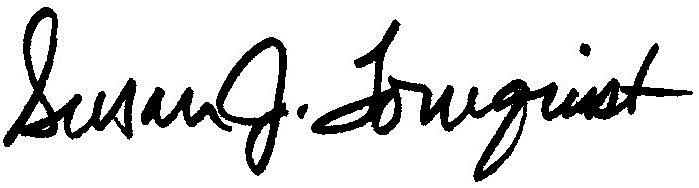 Susan J. Tornquist